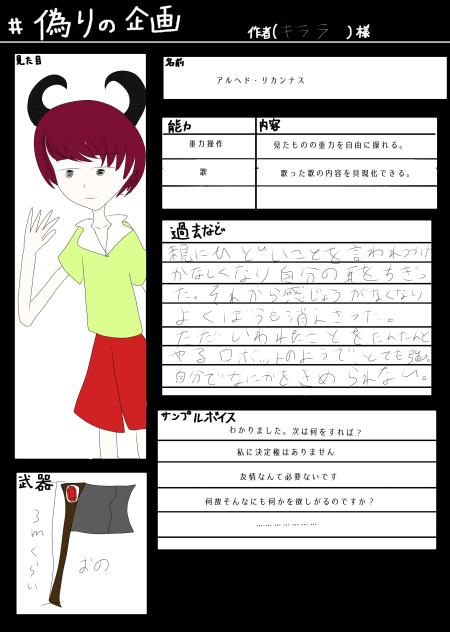 # 偽りの企画
作者(キララ)様
見た目
名前
アルヘド・リカンナス
能力 内容
重力操作 見たものの重力を自由に操れる。
歌 歌った歌の内容を具現化できる。
過去など
親にひどいことを言われつづけ
かなしくなり自分の耳をちぎっ
た。それから感じょうがなくなり
よくぼうも消えさった。
ただいわれたことをたんたんと
やるロボットのようで、とても強い。
自分でなにかをきめられない。
サンプルボイス
わかりました。次は何をすれば?
私に決定権はありません
友情なんて必要ないです
何故そんなにも何かを欲しがるのですか?
………………
武器
3mくらい
おの